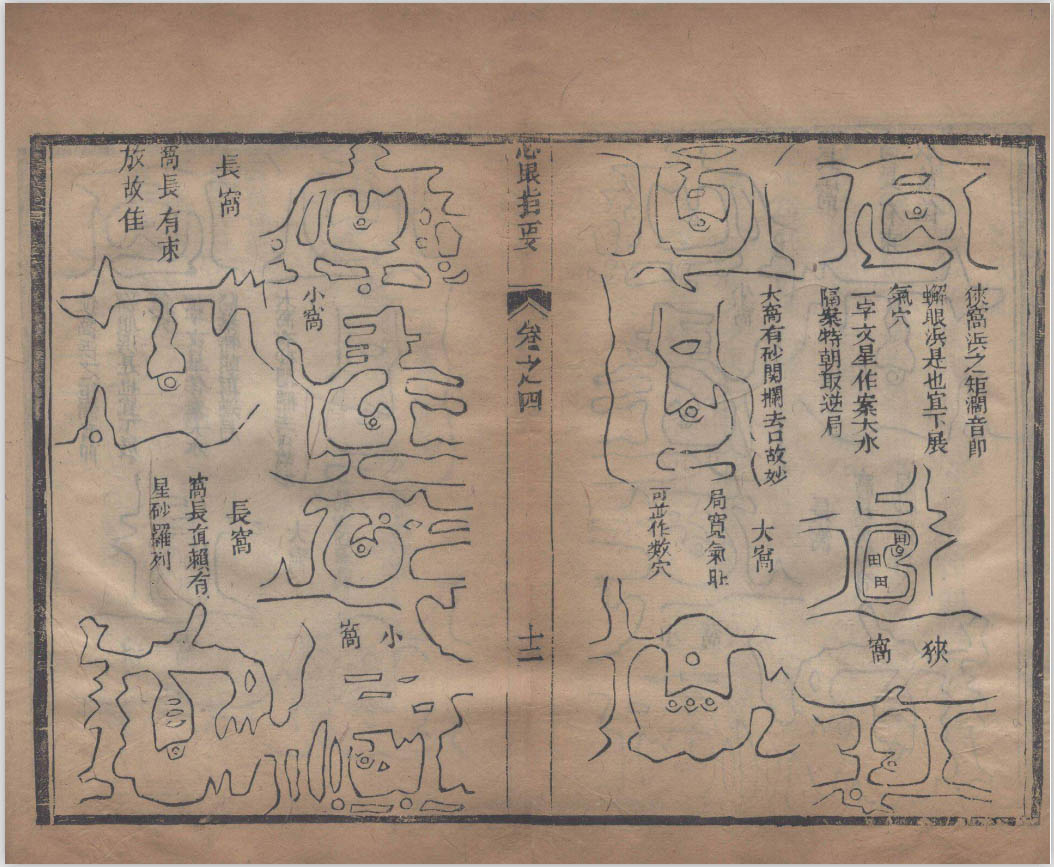 狹窩浜之矩濶音即
蠏眼浜是也宜下展
氣穴
一字文星作案大水
隔案特朝取逆局
狹
窩
田
田
田
大窩有砂関攔去口故妙
大窩
局寬氣
可並作数穴
心眼指要
卷之四
十二
小窩
小
窩
長窩
窩長有束
放故佳
長窩
窩長直賴有
星砂羅列